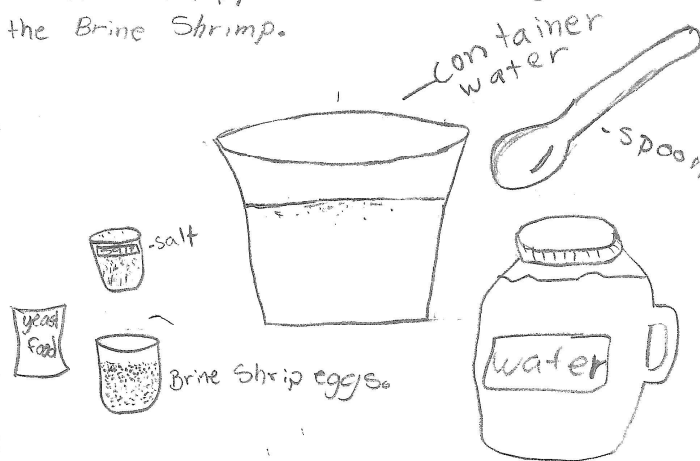 the Brine Shrimp.
container
water
-spoon
-salt
salt
yeast
Food
Brine Shrip eggs.
water